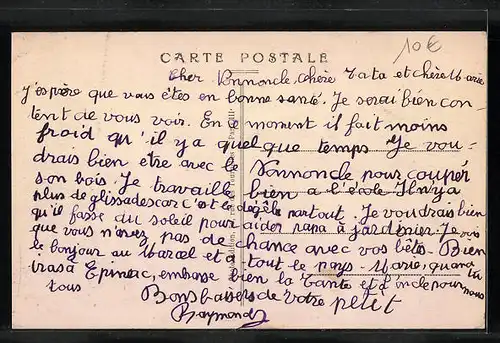 10€
CARTE POSTALE
Cher Nonnoncle chère Tata et chère Marie
J'espère que vous êtes en bonne santé. Je serai bien con-
tent de vous voir. En ce moment il fait moins
froid qu'il y a quel que temps Je vou-
drais bien être avec le Nonnoncle pour couper
son bois. Je travaille bien a l'école Il n'y a
plus de glissades car c'est le dégèle partout. Je voudrais bien
qu'il fasse du soleil pour aider papa à jardiner. Je vois
que vous n'avez pas de chance avec vos bêtes. Bien
le bonjour au Marcel et à tout le pays - Marie, quand tu
iras à Epinac, embasse bien la Tante et l'oncle pour nous
tous
Bons baisers de votre petit
Raymond